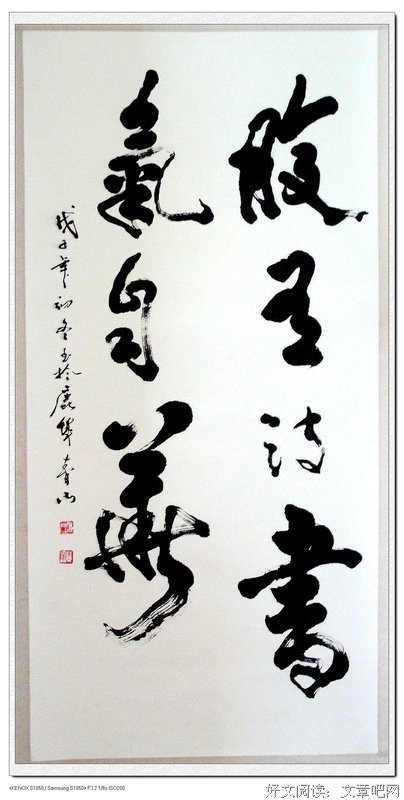 腹有詩書
氣自華
戊子年初冬書於鹿城
<KENOX S1050 / Samsung S1050> F3.2 1/8s ISO200
好文阅读：文章吧网